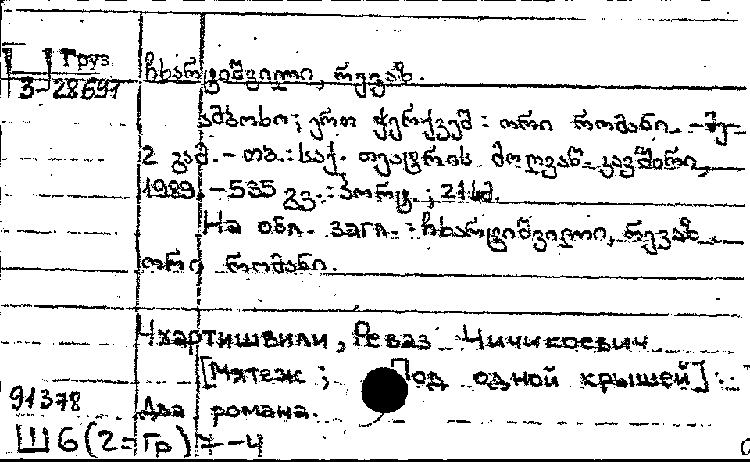 Груз
3-28691
ჩხარტიშვილი, რევაზ.
ამბოხი; ერთ ჭერქვეშ: ორი რომანი. - მე-
2 გამ. - თბ.: საქ. თეატრის მოღვაწ. კავშირი,
1989. - 535 გვ.: პორტ.; 21 სმ.
На обл. загл.: ჩხარტიშვილი, რევაზ.
ორი რომანი.
Чхартишвили, Реваз Чичикоевич
[Мятеж; Под одной крышей]:
Два романа.
91378
Ш6(2=Гр)7-4